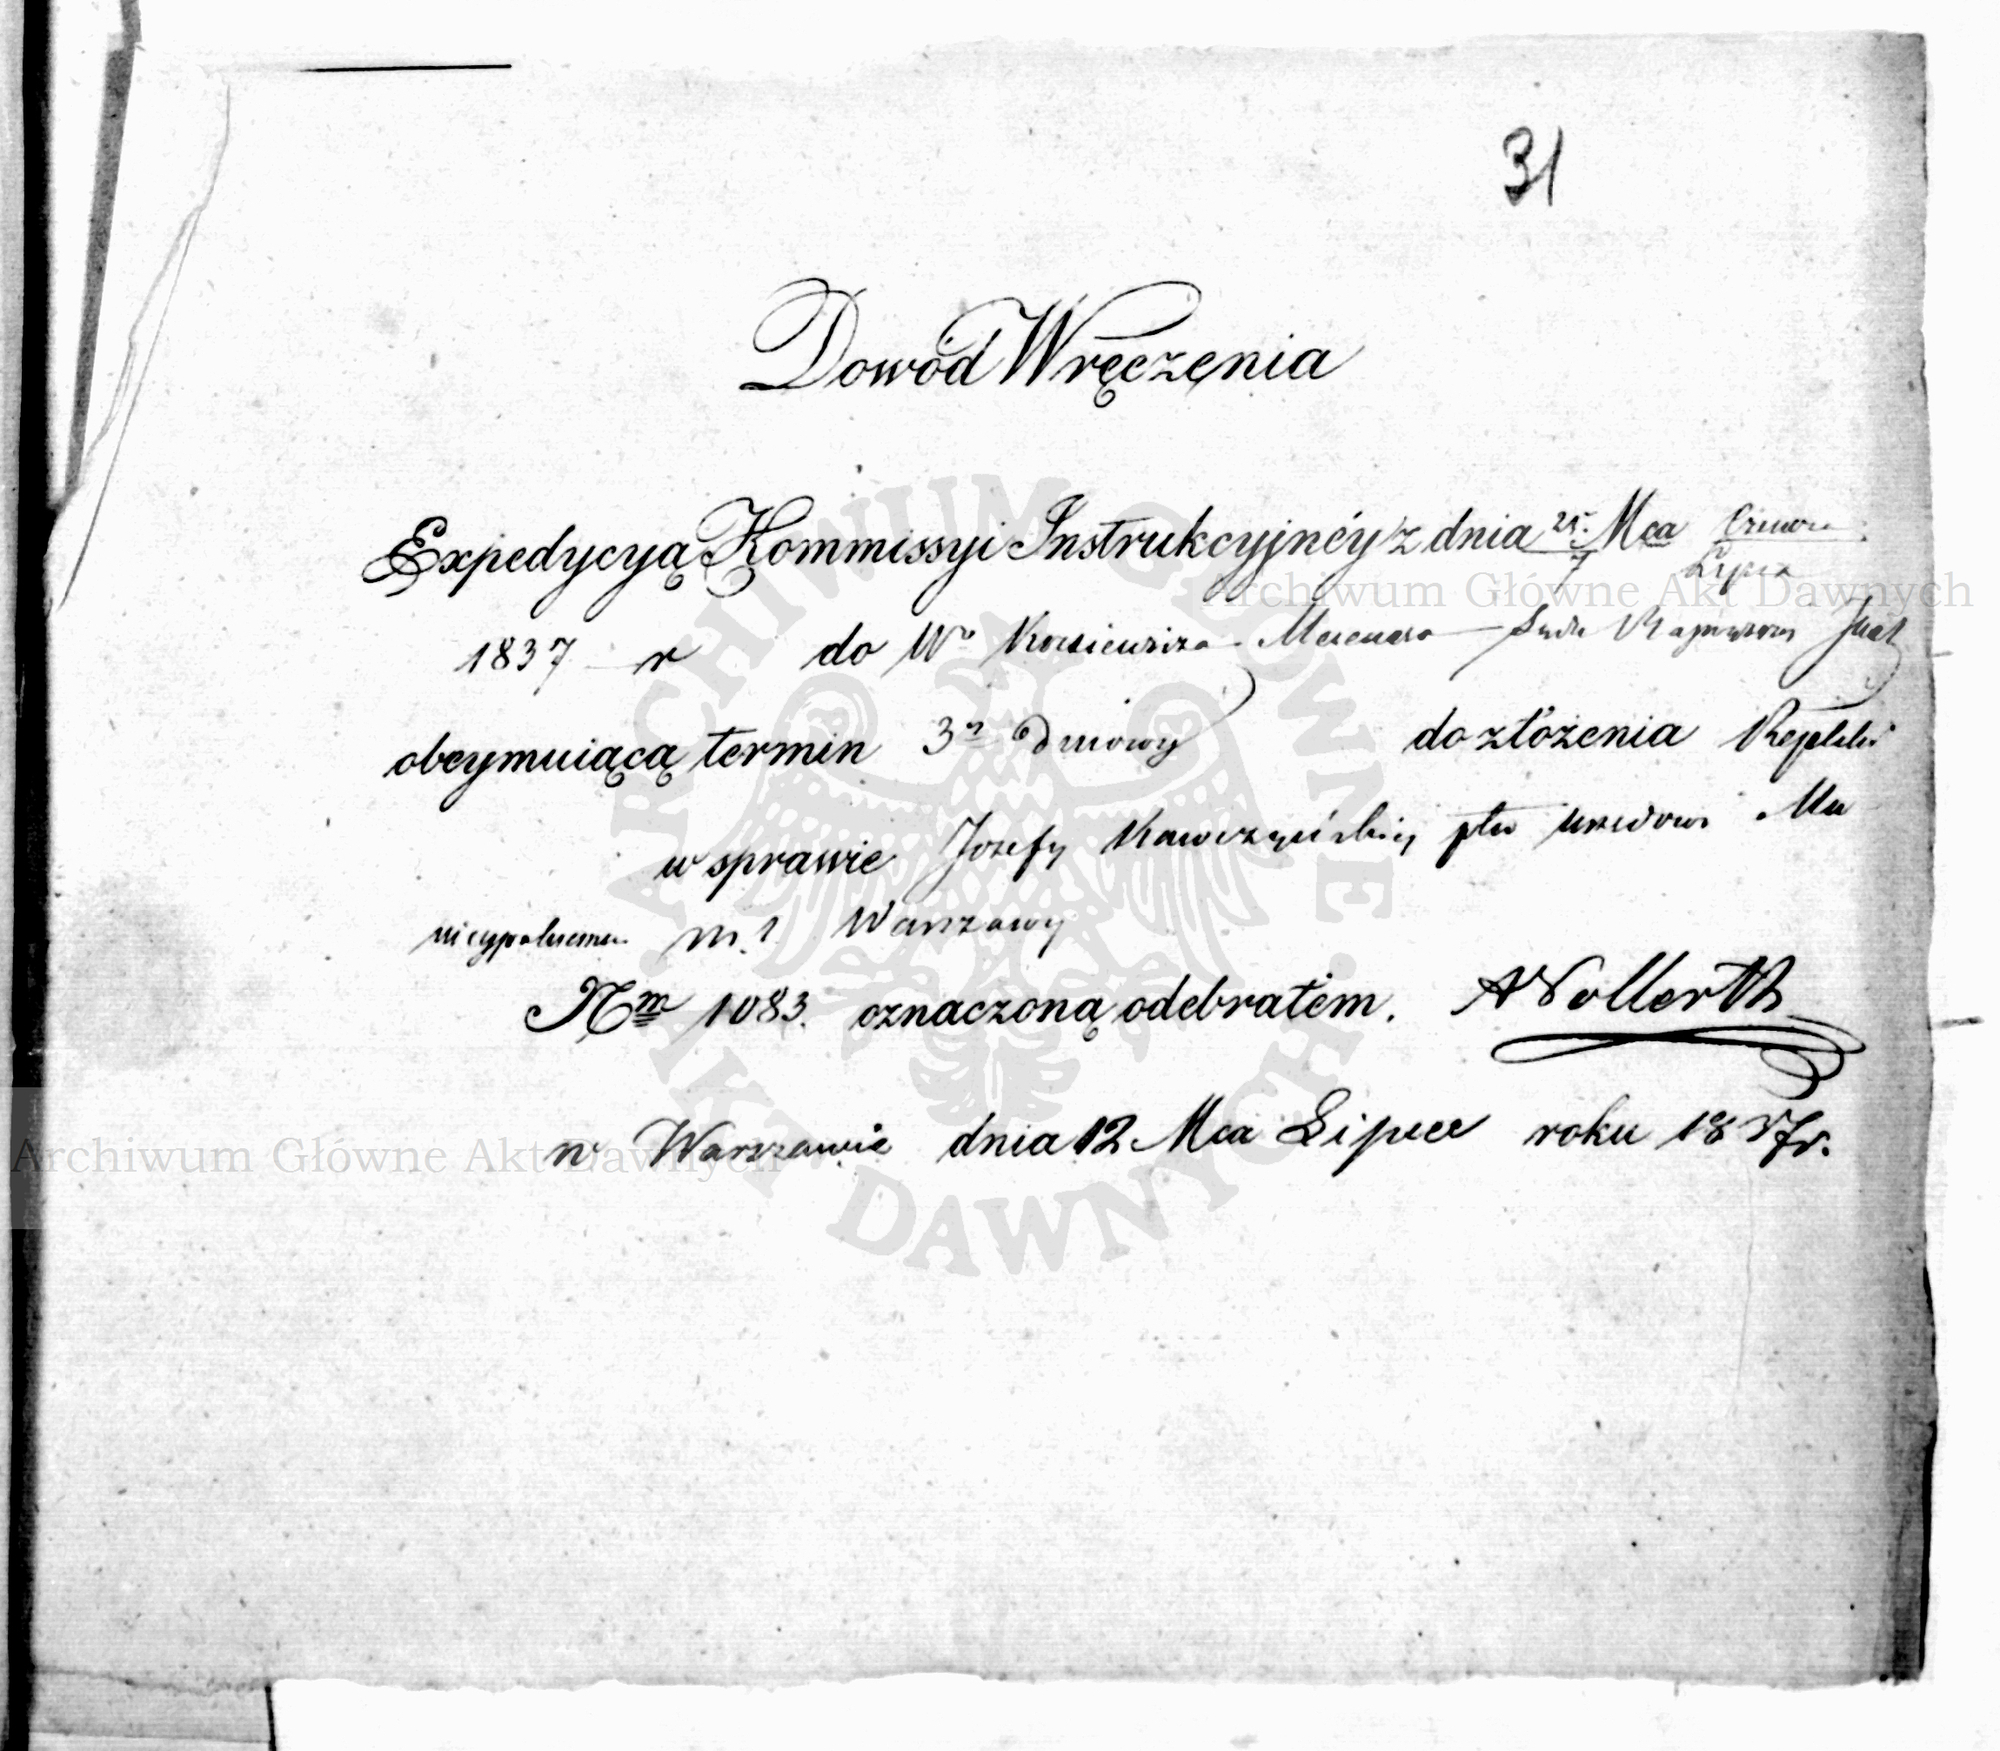 31
Dowód Wręczenia
Expedycyą Kommissyi Instrukcyjnéy z dnia 25/7 Mca Czerwca/Lipca
1837 r do Wo Mecenasa Sądu
obeymuiącą termin 3 Dniowy do złożenia Repliki
w sprawie Jozefy Kawczyńskiey ptko Urzędowi Mu
nicypalnemu m. Warszawy
Nrm 1083. oznaczoną odebrałem. AVollerth
w Warszawie dnia 12 Mca Lipca roku 1837r.
ARCHIWUM GŁÓWNE AKT DAWNYCH
Archiwum Główne Akt Dawnych
Archiwum Główne Akt Dawnych